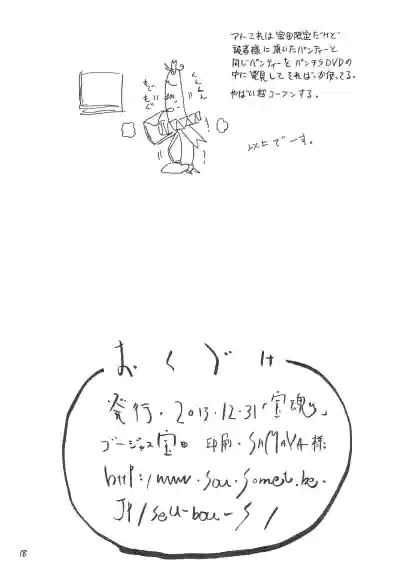 アトこれは宝田限定だけど
読者様に頂いたパンティーと
同じパンティーをパンチラDVDの
中に発見してそればっか使ってる。
やばい超コーフンする。
以上でーす。
くん
くん
もぞ
もぞ
おくづけ
発行・2013.12.31「宝魂」
ゴージャス宝田 印刷・SAMAYA様
18